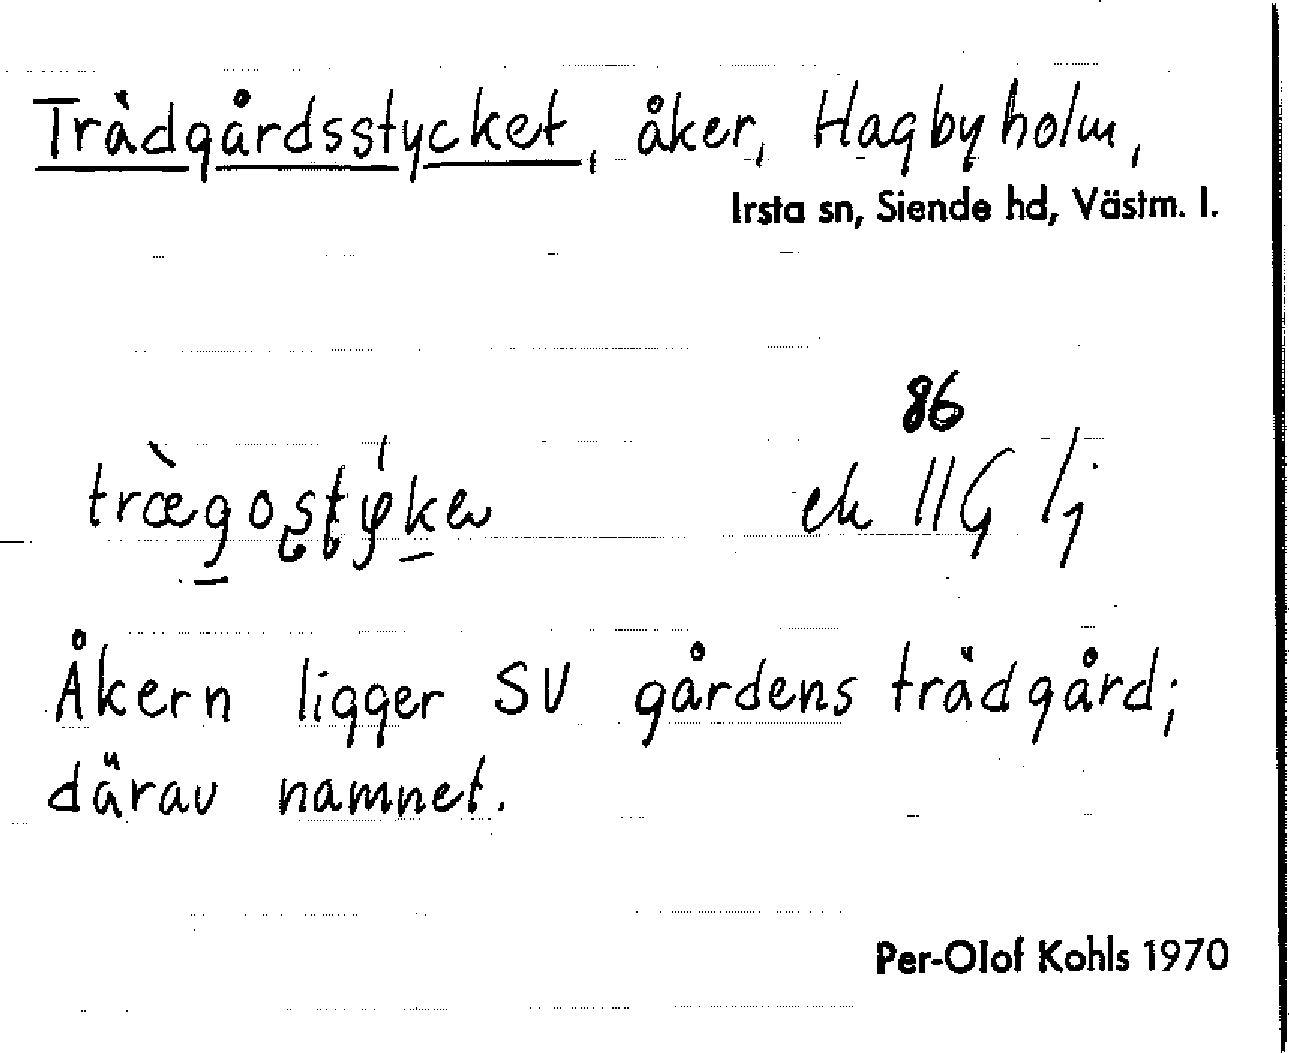 Trädgårdsstycket, åker, Hagbyholm,
Irsta sn, Siende hd, Västm. l.
86
ek 11G 1j
Åkern ligger SV gårdens trädgård;
därav namnet.
Per-Olof Kohls 1970